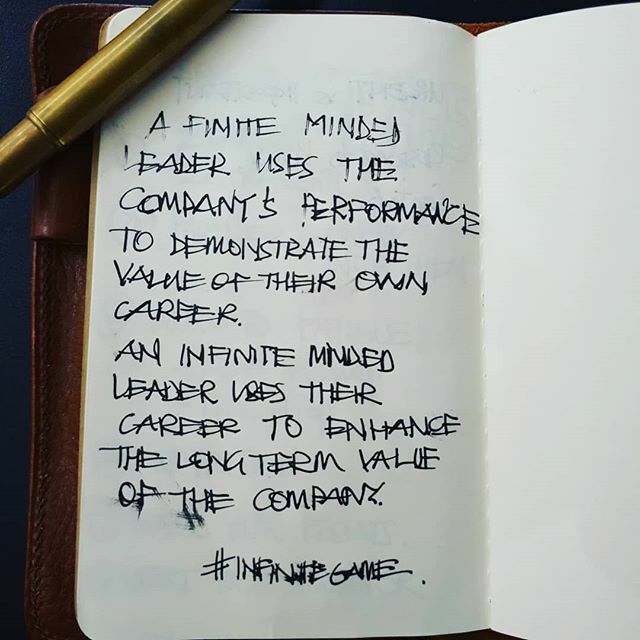 A FINITE MINDED
LEADER USES THE
COMPANY'S PERFORMANCE
TO DEMONSTRATE THE
VALUE OF THEIR OWN
CAREER.
AN INFINITE MINDED
LEADER USES THEIR
CAREER TO ENHANCE
THE LONG TERM VALUE
OF THE COMPANY.
#INFINITEGAME.